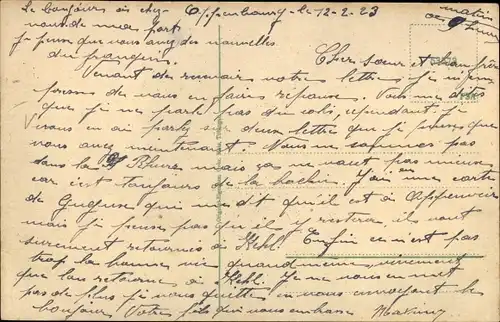 Le bonjours au chez
vous de ma part
je pense que vous avez des nouvelles
du frangin.
Appenbourg le 12-2-23
matin
9 heures
Chers sœur et beau frère
Venant de recevoir votre lettre je m'em
presse de vous en faire réponse. Vous me dites
que je ne parle pas du colis, cependant je
vous en ai parlé sur deux lettre que je pense que
vous avez maintenant. Nous ne sommes pas
dans la Rhur mais ça ne vaut pas mieux
car c'est toujours de la J'ai une carte
de Gugusse qui me dit qu'il est à
mais je pense pas qu'il y restera ils vont
surement retournés à Kehl. Enfin ce n'est pas
trop la bonne vie quand même, vivement
que l'on retourne à Kehl. Je ne vous en met
pas de plus je vous quitte en vous envoyant le
bonjour Votre qui vous embrasse Maxime